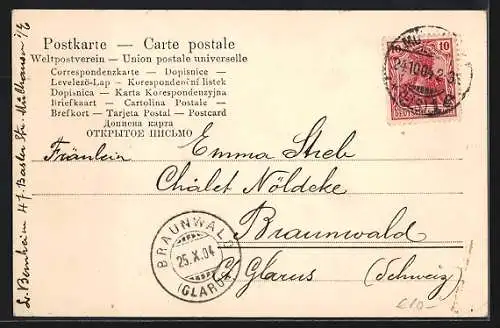 Postkarte — Carte postale
Weltpostverein — Union postale universelle
Correspondenzkarte — Dopisnice
Levelező-Lap — Korespondenční listek
Dopisnica — Karta Korespondenzyjna
Briefkaart — Cartolina Postale
Brefkort — Tarjeta Postal — Postcard
Дописна карта
ОТКРЫТОЕ ПИСЬМО
Fräulein Emma Streb
Châlet Nöldeke
Braunwald
Ct. Glarus (Schweiz)
BRAUNWALD
25.X.04
(GLARUS)
10
24.10.04.2-3
Bernheim 47. Basler Str. Mülhausen i/E